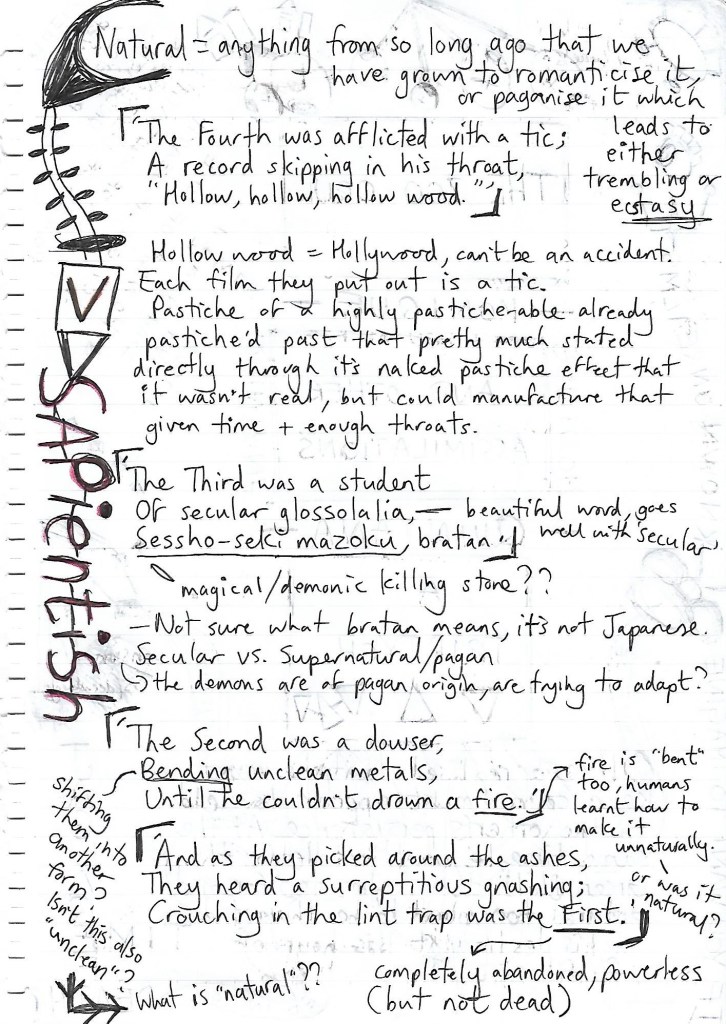 Natural = anything from so long ago that we
have grown to romanticise it,
or paganise it which
leads to
either
trembling or
ecstasy
The Fourth was afflicted with a tic;
A record skipping in his throat,
"Hollow, hollow, hollow wood."
Hollow wood = Hollywood, can't be an accident.
Each film they put out is a tic.
Pastiche of a highly pastiche-able already
pastiche'd past that pretty much stated
directly through it's naked pastiche effect that
it wasn't real, but could manufacture that
given time + enough throats.
SAPientish
The Third was a student
Of secular glossolalia, — beautiful word, goes
well with 'secular'
Sessho-seki mazoku, bratan.
magical/demonic killing stone??
— Not sure what bratan means, it's not Japanese.
Secular vs. Supernatural/pagan
↳ the demons are of pagan origin, are trying to adapt?
The Second was a dowser,
Bending unclean metals,
Until he couldn't drown a fire.
fire is "bent"
too, humans
learnt how to
make it
unnaturally.
or was it
natural?
shifting
them into
another
form?
Isn't this also
"unclean"?
And as they picked around the ashes,
They heard a surreptitious gnashing;
Crouching in the lint trap was the First.
completely abandoned, powerless
(but not dead)
What is "natural"??